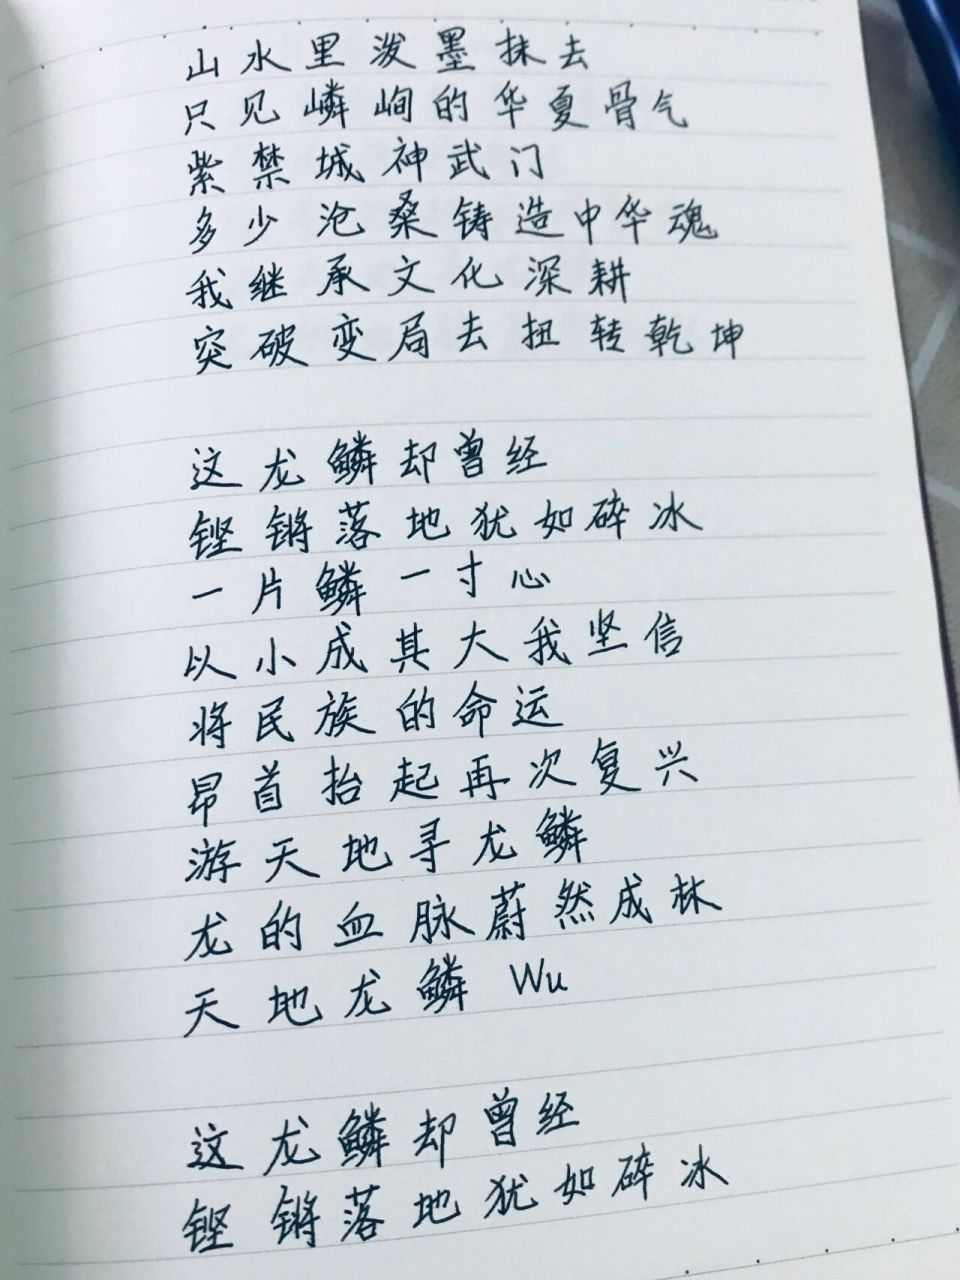 山水里泼墨抹去
只见嶙峋的华夏骨气
紫禁城神武门
多少沧桑铸造中华魂
我继承文化深耕
突破变局去扭转乾坤
这龙鳞却曾经
铿锵落地犹如碎冰
一片鳞一寸心
以小成其大我坚信
将民族的命运
昂首抬起再次复兴
游天地寻龙鳞
龙的血脉蔚然成林
天地龙鳞 Wu
这龙鳞却曾经
铿锵落地犹如碎冰